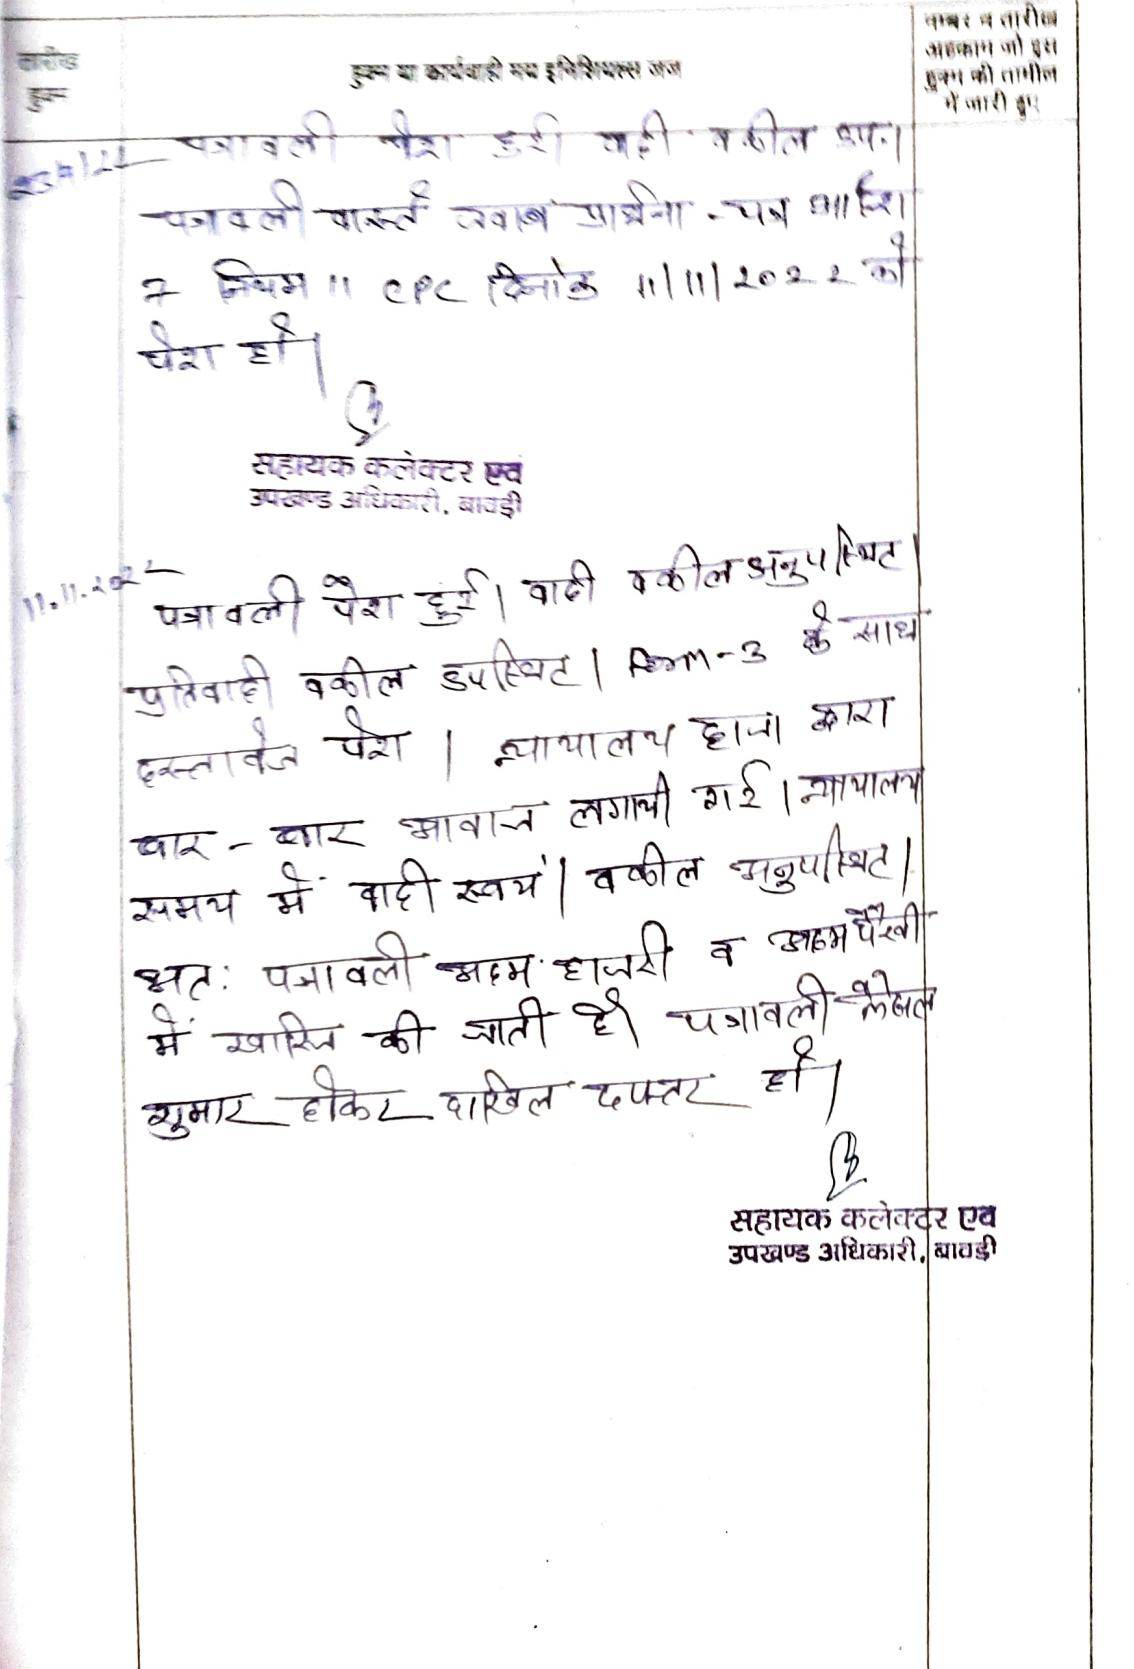 तारीख
हुक्म
हुक्म या कार्यवाही मय इनिशियल्स जज
नम्बर व तारीख
अहकाम जो इस
हुक्म की तामील
में जारी हुए
पत्रावली पेश हुई। वादी वकील उप.।
पत्रावली वास्ते जवाब प्रार्थना-पत्र आदेश
7 नियम 11 CPC दिनांक 11/11/2022 को
पेश हो।
सहायक कलेक्टर एवं
उपखण्ड अधिकारी, बावड़ी
11.11.2022
पत्रावली पेश हुई। वादी वकील अनुपस्थित।
प्रतिवादी वकील उपस्थित। Form-3 के साथ
दस्तावेज पेश। न्यायालय हाजा द्वारा
बार-बार आवाज लगायी गई। न्यायालय
समय में वादी स्वयं। वकील अनुपस्थित।
अतः पत्रावली अदम हाजरी व अदम पैरवी
में खारिज की जाती है। पत्रावली फैसल
शुमार होकर दाखिल दफ्तर हो।
सहायक कलेक्टर एवं
उपखण्ड अधिकारी, बावड़ी